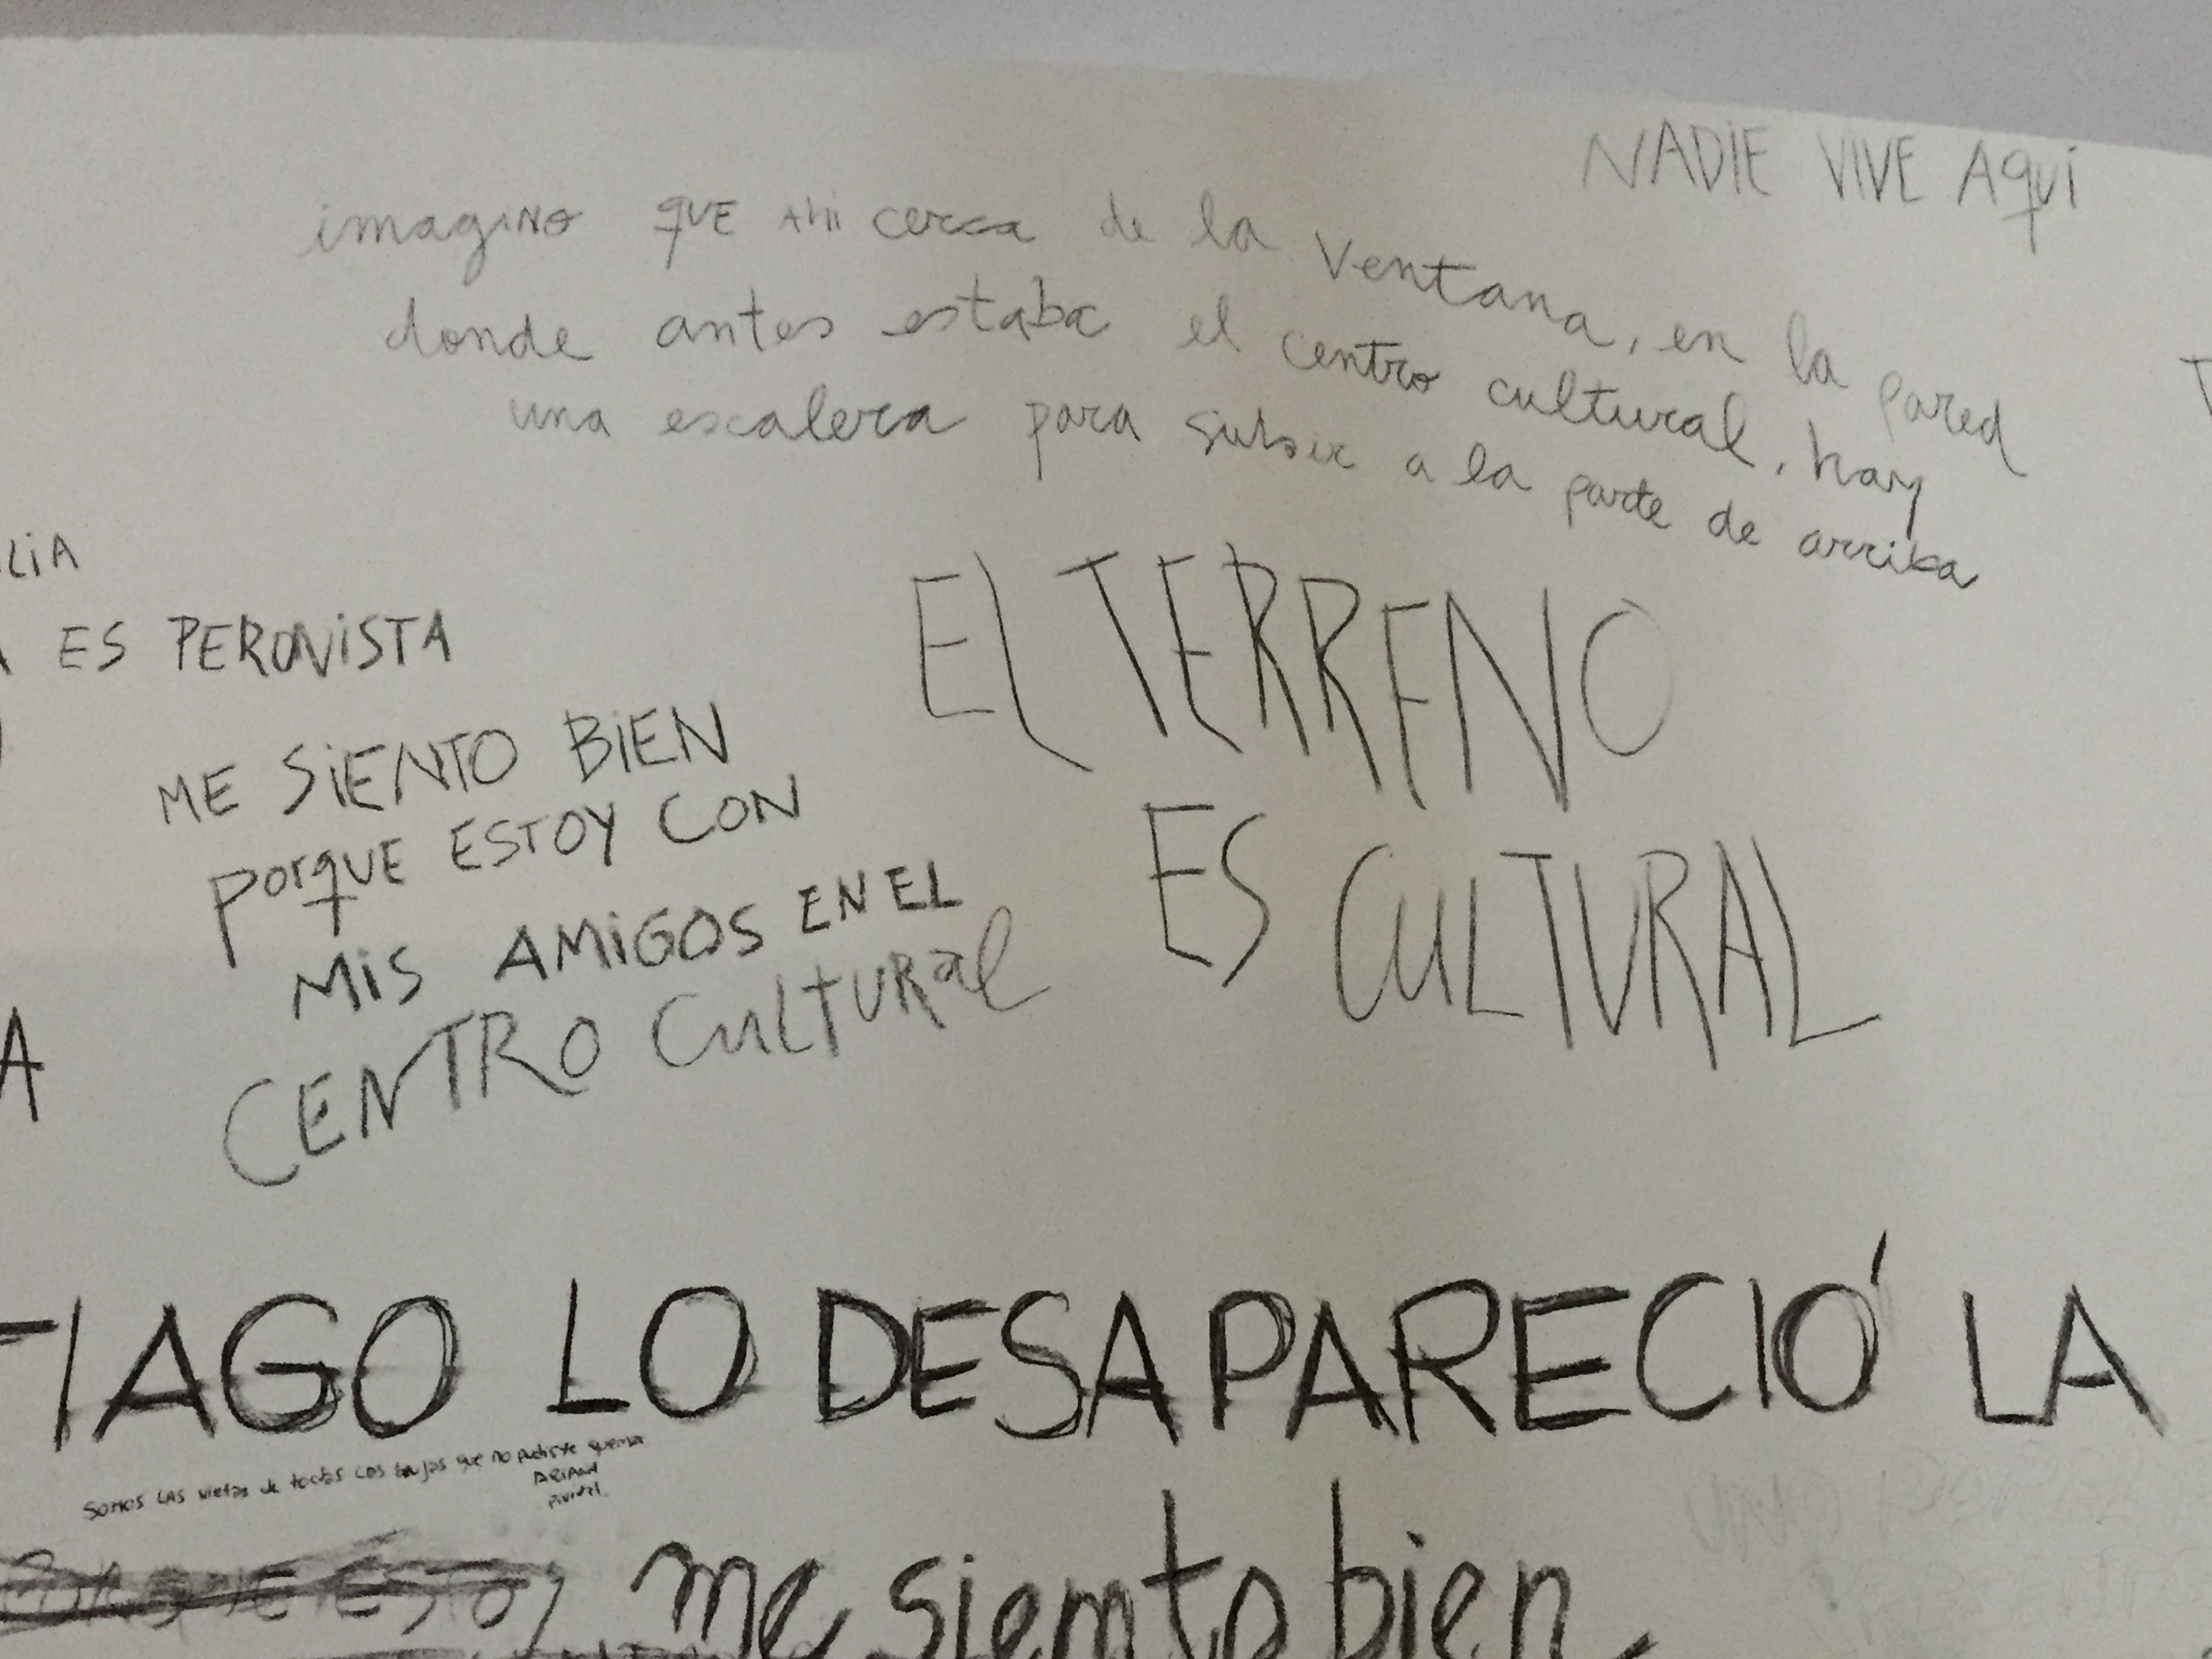 NADIE VIVE AQUI
imagino que ahi cerca de la ventana, en la pared
donde antes estaba el centro cultural, hay
una escalera para subir a la parte de arriba
LiA
ES PERONiSTA
EL TERRENO
ES CULTURAL
ME SiENTO BiEN
PorqUE ESTOY CON
MiS AMiGOS EN EL
CENTRO CULTURal
A
TIAGO LO DESAPARECIÓ LA
SOMOS LAS nietas de todas Las brujas que no pudiste quemar
me siento bien